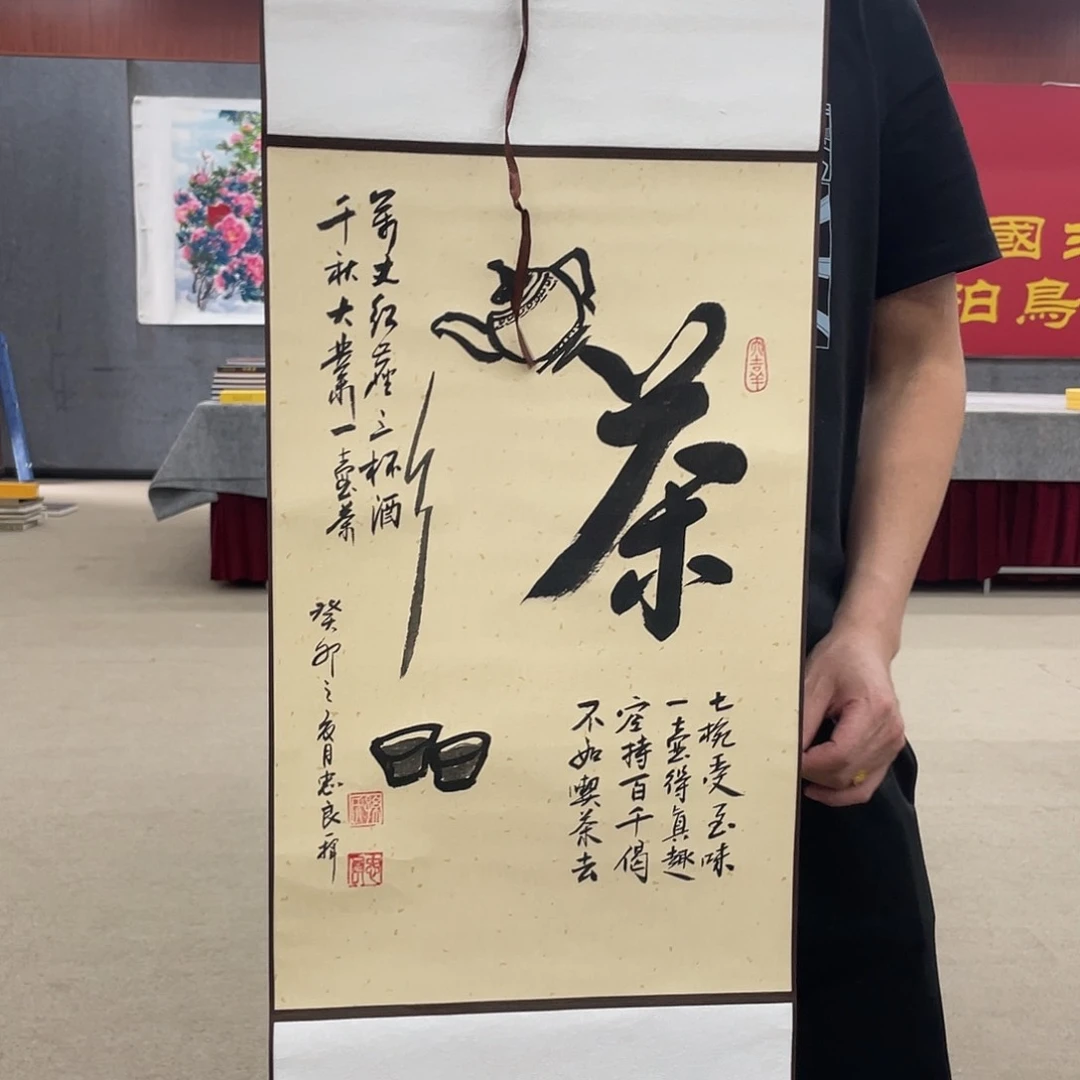 茶
大吉羊
七椀受至味
一壺得真趣
空持百千偈
不如喫茶去
萬丈紅塵三杯酒
千秋大業一壺茶
癸卯之夏月忠良揮
國
鳥